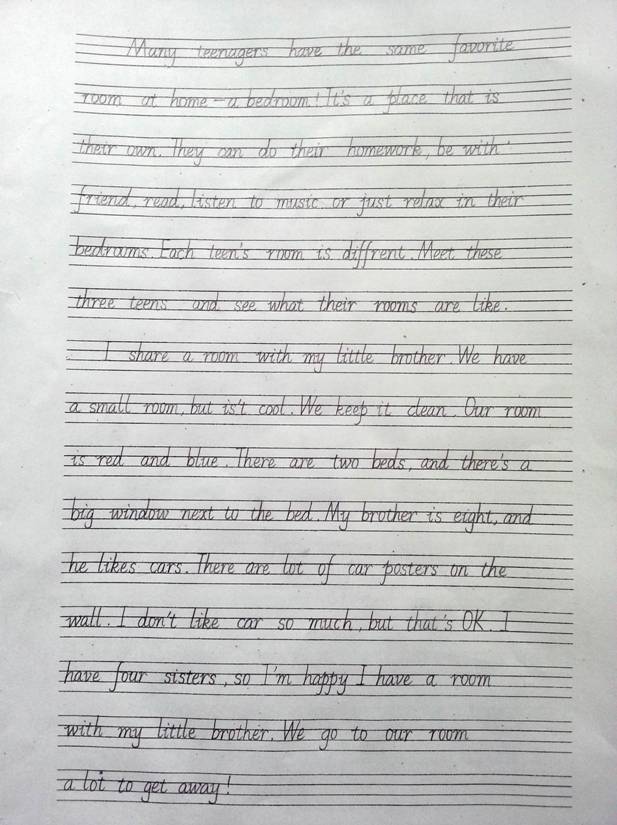 Many teenagers have the same favorite
room at home – a bedroom! It's a place that is
their own. They can do their homework, be with
friend, read, listen to music or just relax in their
bedrooms. Each teen's room is diffrent. Meet these
three teens and see what their rooms are like.
I share a room with my little brother. We have
a small room, but is't cool. We keep it clean. Our room
is red and blue. There are two beds, and there's a
big window next to the bed. My brother is eight, and
he likes cars. There are lot of car posters on the
wall. I don't like car so much, but that's OK. I
have four sisters, so I'm happy I have a room
with my little brother. We go to our room
a lot to get away!